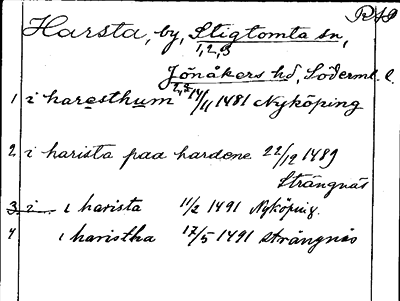 Harsta, by, Stigtomta sn,
1,2,3
Jönåkers hd, Söderml. l.
1 i haresthum 14/11 1481 Nyköping
2 i harista paa hardene 22/12 1489
Strängnäs
3 i i harista 11/2 1491 Nyköping.
4 i haristha 17/5 1491 Strängnäs